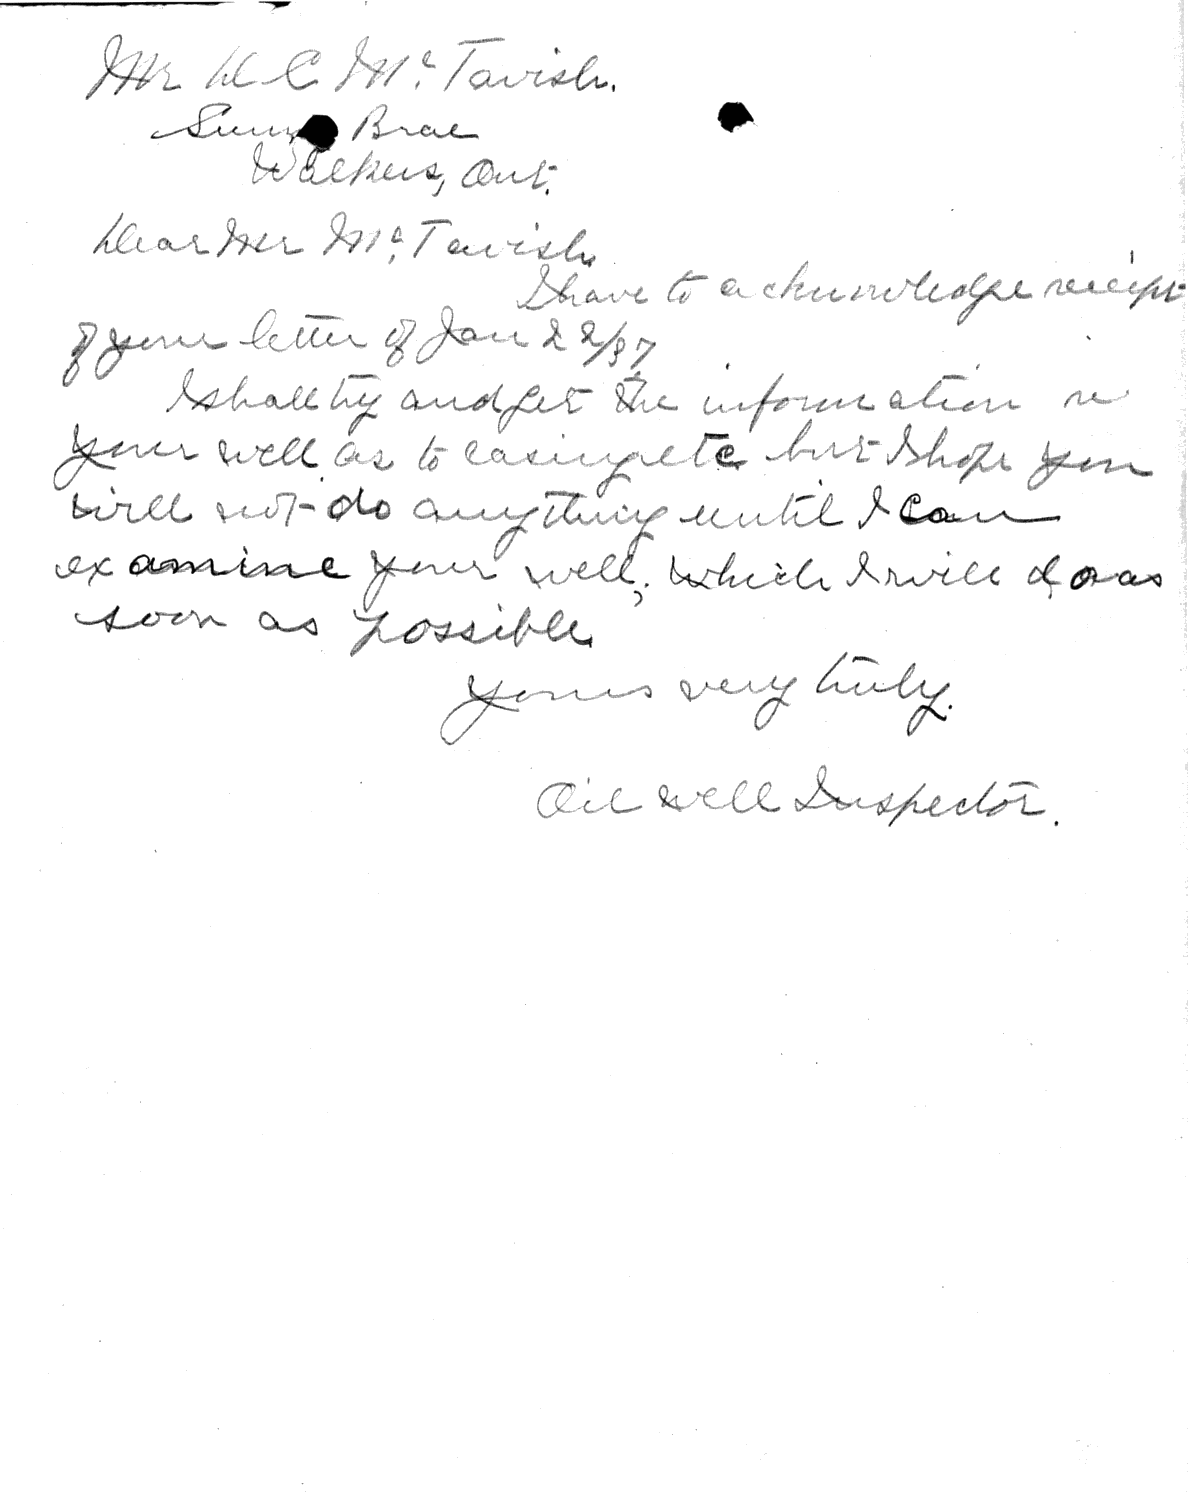 Mr D C Mc Tavish.
Sunny Brae
Walkers, Ont.
Dear Mr Mc Tavish,
I have to acknowledge receipt
of your letter of Jan 22/37
I shall try and get the information re
your well as to casing etc but I hope you
will not do anything until I can
examine your well, which I will do as
soon as possible.
Yours very truly.
Oil well Inspector.